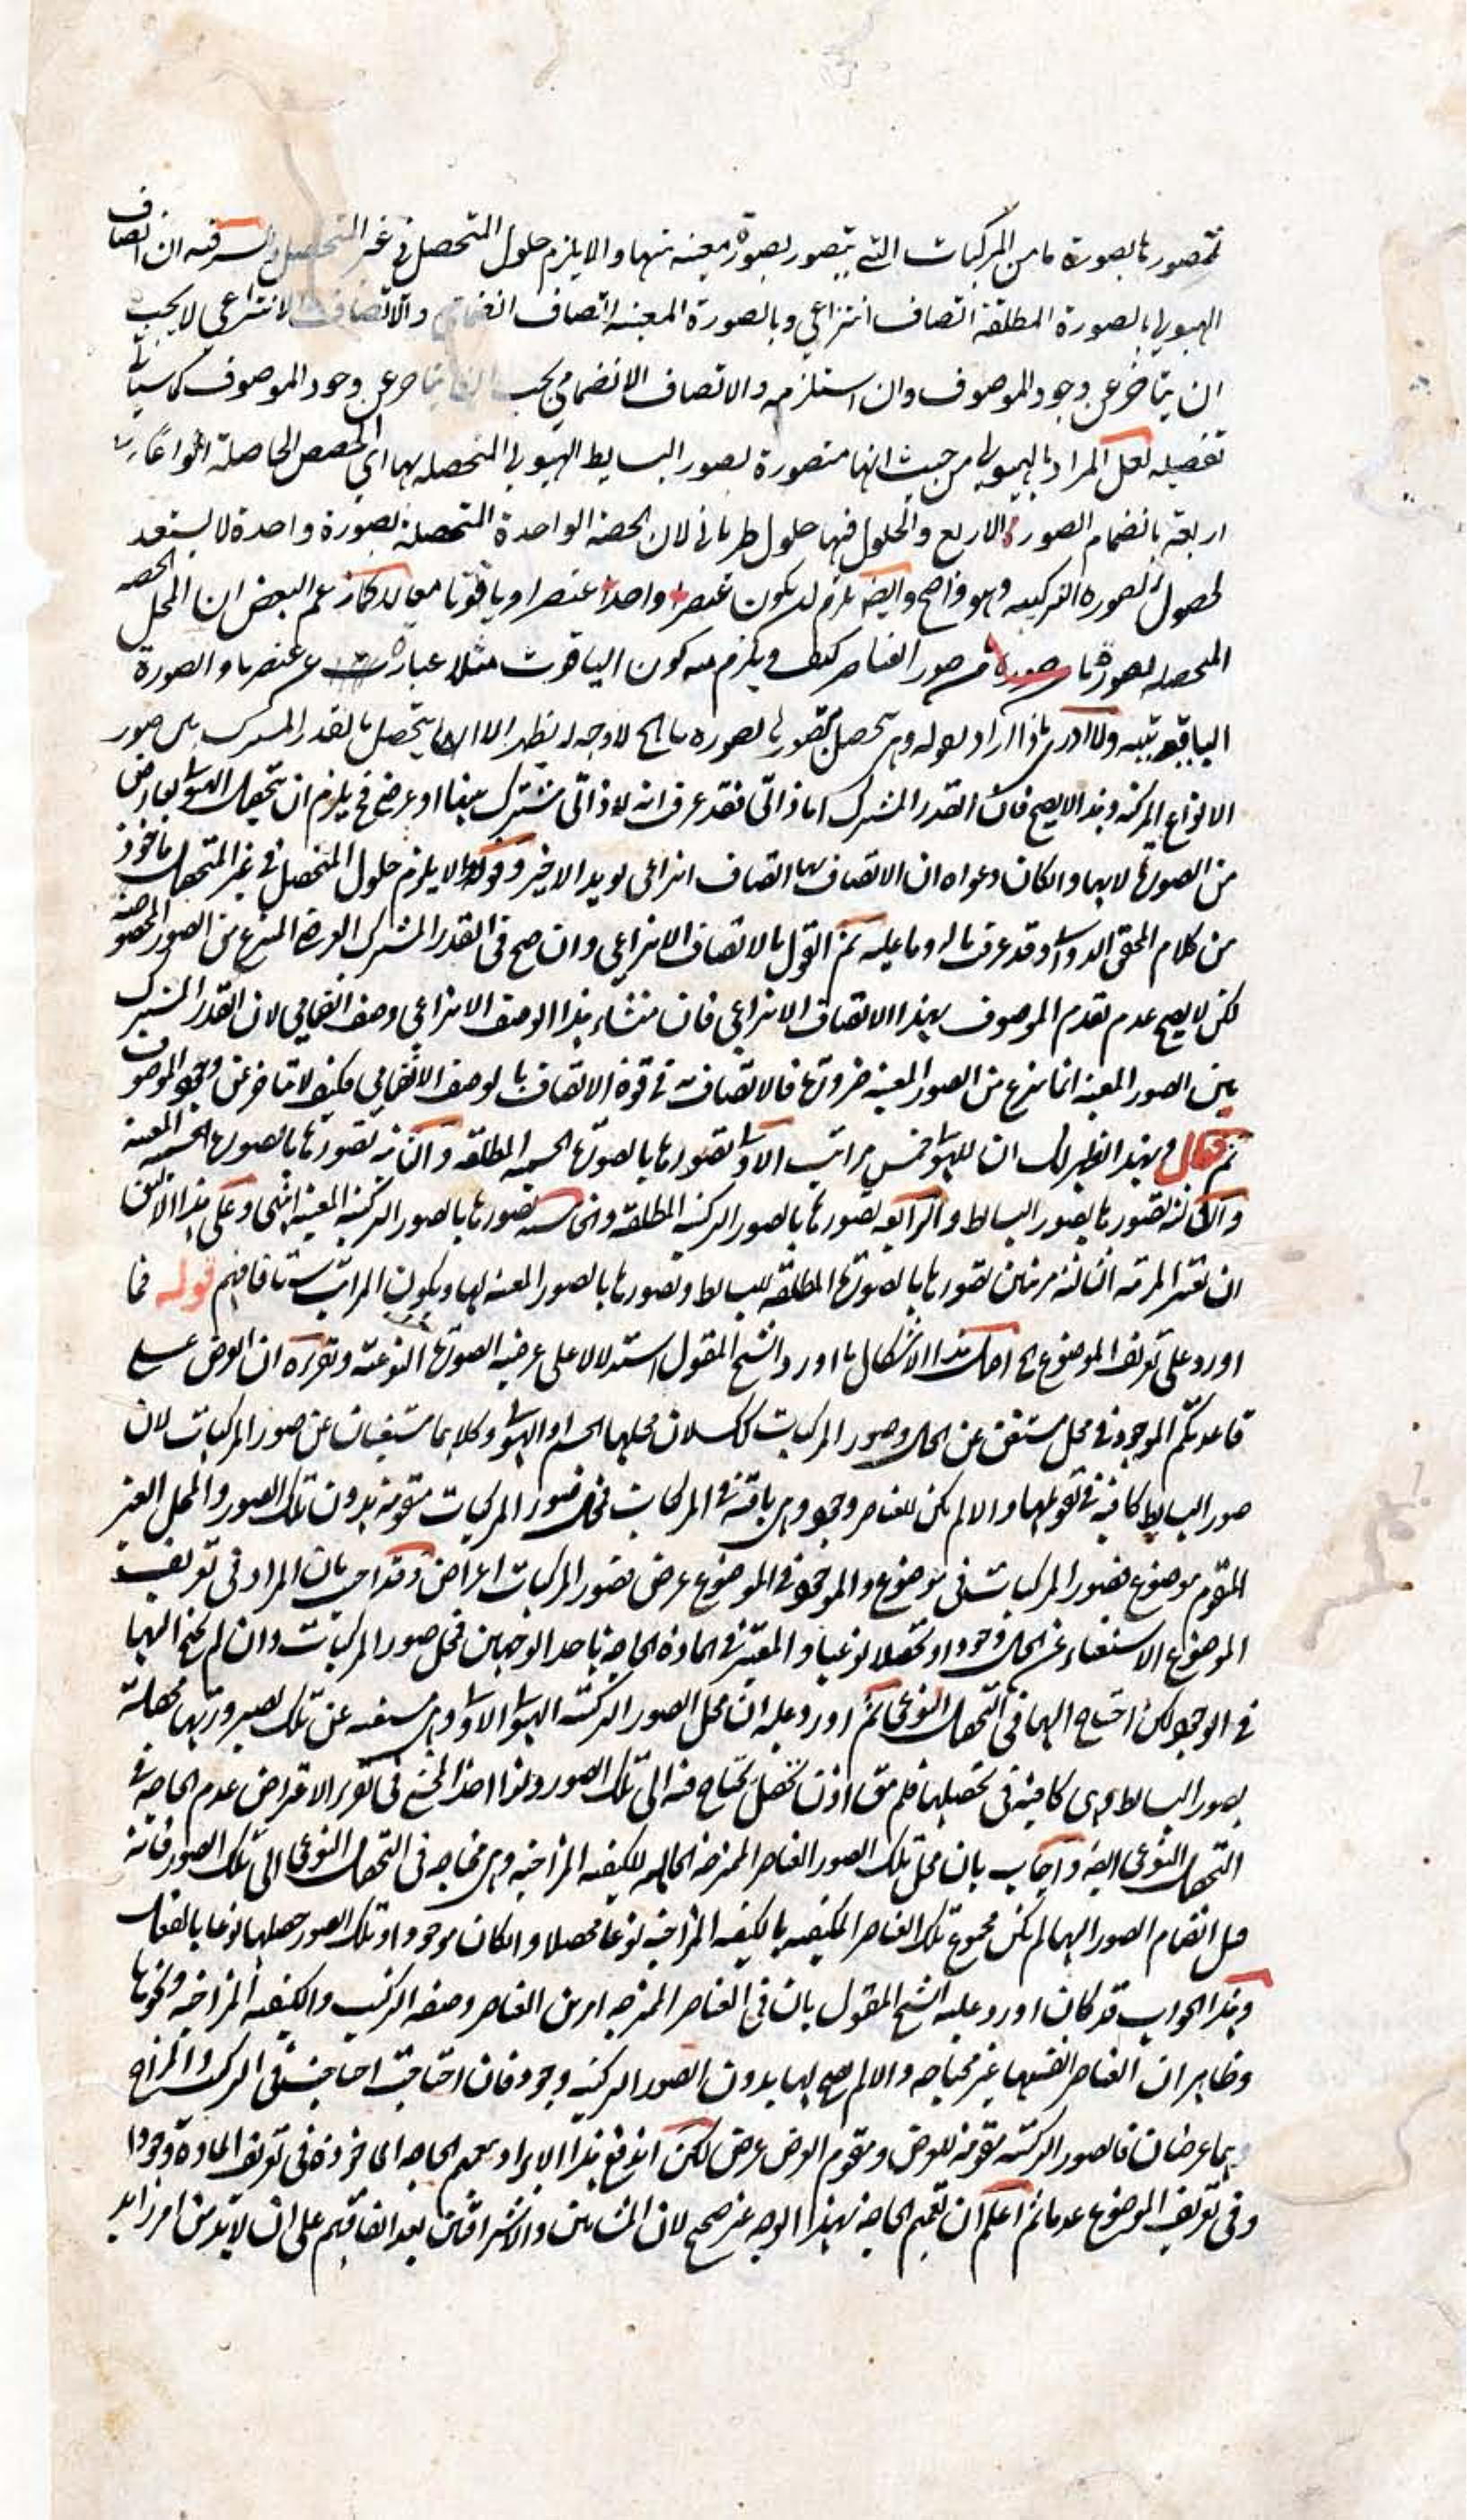 تتصور بالصورة ما من المركبات التي تتصور بصورة معينه منها والا يلزم حلول المتحصل في غير المتحصل فيه ان اتصاف
الهيولى بالصورة المطلقة اتصاف انتزاعي وبالصورة المعينه اتصاف والاتصاف الانتزاعي لا يجب
ان يتاخر عن وجود الموصوف وان استلزمه والاتصاف الانضمامي يجب عن وجود الموصوف كما سياتي
تفصيله لعل المراد بالهيولى من حيث انها متصورة بصور البسايط الهيولى المتحصله بها اي الحصص الحاصلة انواعا
اربعة بانضمام الصور الاربع والحلول فيها حلول طرياني لان الحصة الواحدة المتحصلة بصورة واحدة لا يستعد
لحصول الصورة التركيبيه وهو واضح وايضا يلزم ان يكون عنصرا واحدا عنصرا وياقوتا معا زعم البعض ان المحل الحصه
المتحصله بصورة ما من صور العناصر كيف ويلزم منه كون الياقوت مثلا عبارة عن عنصر ما والصورة
الياقوتيه ولا ادري ماذا اراد بقوله تتصورها بصورة ما الخ لا وجه له يظهر الا ان يتحصل بالقدر المشترك بين صور
الانواع المركبه وهذا لا يصح فان القدر المشترك اما ذاتي فقد عرف انه لا ذاتي مشترك بينها او عرضي فح يلزم ان تتحصل الهيولى بعارض
من الصورة لا بها والكان دعواه ان الاتصاف بها اتصاف انتزاعي يويد الاخير وقوله والا يلزم حلول المتحصل في غير المتحصل ماخوذ
من كلام المحقق الدواني وقد عرفت ماله وما عليه ثم القول بالاتصاف الانتزاعي وان صح في القدر المشترك العرضي المنتزع من الصور المخصوصة
لكن لا يصح عدم تقدم الموصوف بهذا الاتصاف الانتزاعي فان منشاء هذا الوصف الانتزاعي وصف انضمامي لان القدر المشترك
بين الصور المعينه انما ينتزع من الصور المعينه ضرورة فالاتصاف به في قوة الاتصاف بالوصف الانضمامي فكيف لا يتاخر عن وجود الموصوف
ثم قال وبهذا ظهر لك ان للهيولى خمس مراتب الاولى تصورها بالصورة الجسميه المطلقه والثانيه تصورها بالصورة الجسميه المعينه
والثالثه تصورها بصور البسايط والرابعه تصورها بالصور التركيبيه المطلقه والخامسه تصورها بالصور التركيبيه المعينه انتهى وعلى هذا الاليق
ان تعتبر المرتبه الثالثه مرتبتين تصورها بالصورة المطلقه للبسايط وتصورها بالصور المعينه لها ويكون المراتب ستا فافهم قوله فما
اورد على تعريف الموضوع الخ اصل هذا الاشكال ما اورده الشيخ المقتول استدلالا على عرضيه الصورة النوعيه وتقريره ان العرض على
قاعدتكم الموجود في محل مستغن عن الحال وصور المركبات كك لان محلها الجسم او الهيولى وكلاهما مستغنيان عن صور المركبات لان
صور البسايط كافيه في تقومها والا لم يكن للعناصر وجود وهي باقيه في المركبات فمحل صور المركبات متقومة بدون تلك الصور والمحل الغير
المتقوم موضوع فصور المركبات في موضوع والموجود في الموضوع عرض فصور المركبات اعراض وقد اجيب بان المراد في تعريف
الموضوع الاستغناء عن الحال وجودا وتحصلا نوعيا والمعتبر في المادة الحاجة باحد الوجهين فمحل صور المركبات وان لم يحتج اليها
في الوجود لكن احتياج اليها في التحصل النوعي ثم اورد عليه ان محل الصور التركيبيه الهيولى الاولى وهي مستغنيه عن تلك لصيرورتها محصلة
بصور البسايط وهي كافية في تحصيلها فلم يبق اذن تحصل يحتاج فيه الى تلك الصور ولذا اخذ الشيخ في تقرير الاعتراض عدم الحاجة في
التحصل النوعي ايضا واجاب بان محل تلك الصور العناصر الممتزجة الحامله للكيفيه المزاجيه وهي محتاجه في التحصل النوعي الى تلك الصور فانه
قبل انضمام الصور اليها لم يكن مجموع تلك العناصر المكيفه بالكيفيه المزاجيه نوعا محصلا والكان موجودا وتلك الصور حصلها نوعا بالفعل
وبهذا الجواب قد كان اورد عليه الشيخ المقتول بان في العناصر الممتزجه امرين العناصر وصفة التركيب والكيفيه المزاجيه ونحوها
وظاهر ان العناصر انفسها غير محتاجه والا لم يصح لها بدون الصور التركيبيه وجود فان احتاجت احتاجت في التركيب والمزاج
وهما عرضان فالصور التركيبيه مقومة للعرض ومقوم العرض عرض لكن اندفع هذا الايراد بتعميم الحاجه الماخوذة في تعريف المادة وجودا
وفي تعريف الموضوع عدما ثم اعلم ان تعميم الحاجة بهذا الوجه غير صحيح لان المشائين والاشراقيين بعد اتفاقهم على ان لا بد من امر زايد